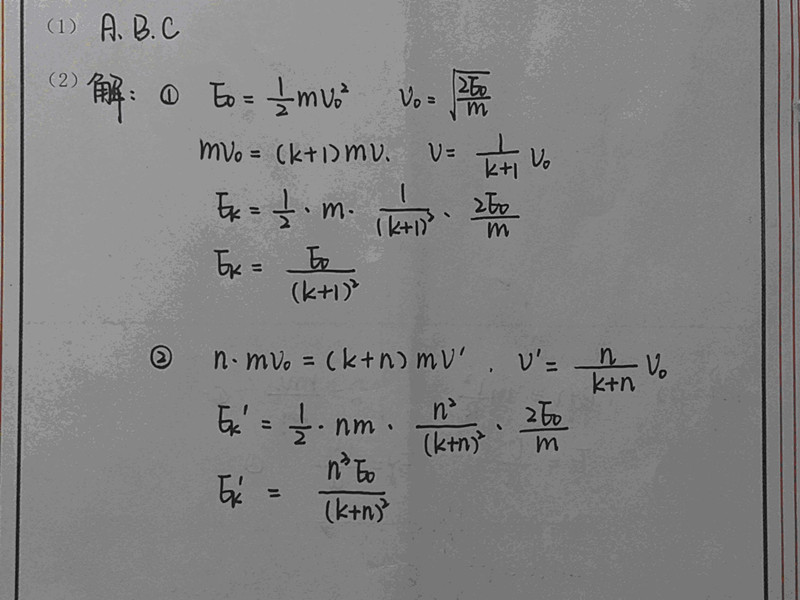 (1) A.B.C
(2) 解: ① E₀ = 1/2 mv₀² v₀ = √(2E₀/m)
mv₀ = (k+1)mv. v = 1/(k+1) v₀
Eₖ = 1/2 · m · 1/(k+1)² · 2E₀/m
Eₖ = E₀/(k+1)²
② n·mv₀ = (k+n)mv' . v' = n/(k+n) v₀
Eₖ' = 1/2 · nm · n²/(k+n)² · 2E₀/m
Eₖ' = n³E₀/(k+n)²